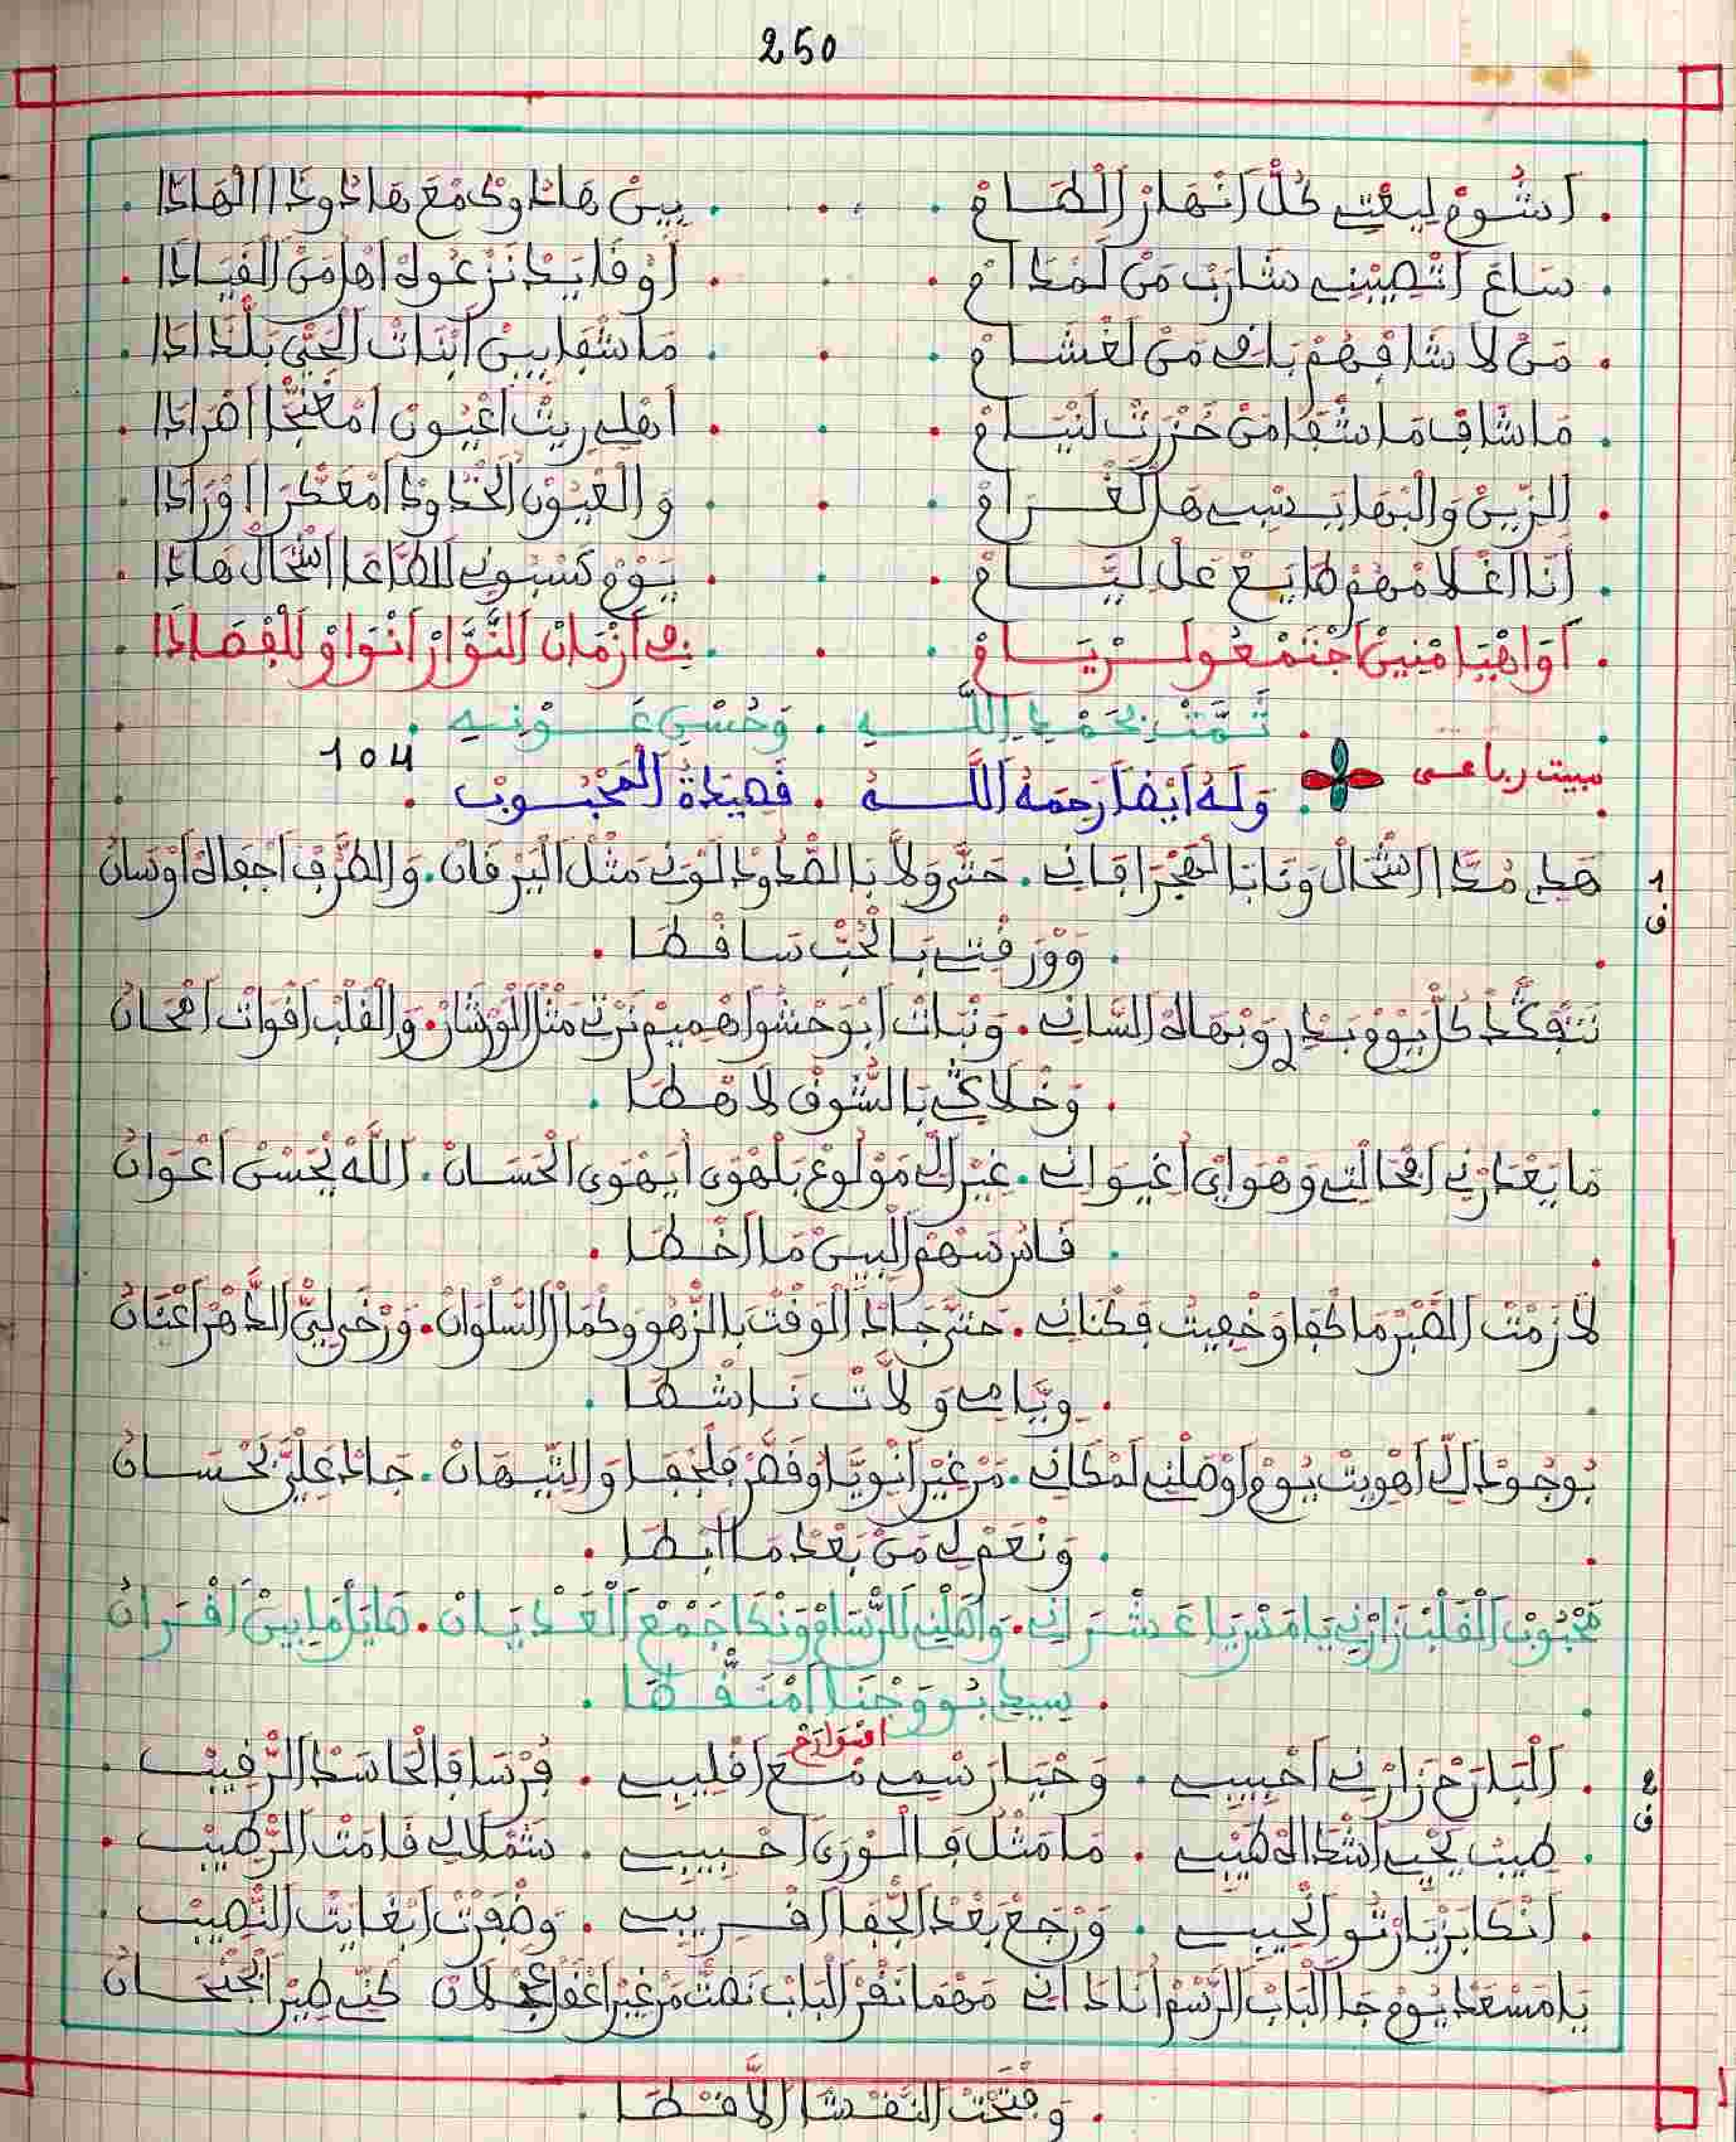 250
اشوم ليعتي كل انهار الطام . بين هاذا وذ مع هاذ وذا الهاذا
ساع اتصيبني شارب من لمدام . اوقايد نزعول اهل من القياذا
من لا شافهم باقي من لغشام . ماشفا بين ابنات الحي بلذاذا
ماشاف ماشقا من خزرت لنيام . اهلي ريت اعيون امغنجا
الزين والبها يسبي هل الغرام . والعيون الخدود امعكرا اورادا
أنا اغلامهم طايع على ليام . يوم كسبوني الطاعا اشحال هاذا
أواهيا امنين اجتمعوا لريام . في ازمان النوار انواو للفصاذا
تمت بحمد الله . وحسن عونه .
مبيت رباعي
وله أيضا رحمه الله . قصيدة المحبوب . 104
1 ف
هذي مدا اشحال ونايا الهجر اقاني . حتى ولا بالصدود لوني مثل اليرقان . والطرف اجفاه اوسان
. وورقتي بالحب ساقطا .
نتفكد كل يوم بدري وبهاه الساني . ونبات ابوحشو اهميم نرني مثل الورشان . والقلب اقوات امحان
. وخلاكي بالشوق لاهطا .
ما يعدرني افحالتي وهواي اغيواني . غير الي مولوع بلهوى ايهوى الحسان . الله يحسن اعوان
. قاس سهم البين ما اخطا .
لازمت الصبر ما كفا وخفيت فكناني . حتى جاد الوقت بالزهو وكمال السلوان . ورخى لي الدهر اعنان
. ويامي ولات ناشطا .
بوجود الي اهويت يوم اوصلني لمكاني . من غير انويا وقصر فلجفا والتيهان . جاد علي بحسان
. ونعم لي من بعد ما ابطا .
محبوب القلب زارني يا مسريا عشراني . واصلني للرسام ونكا جمع العديان . صايل ما بين اقران
. سيدي بو وجنا امنقطا .
2 ف
. البارح زارني احبيبي . وحيا رسمي مع اقليبي . فرساق الحاسد الرقيب .
امواح
. طيب يحي اشداه طيبي . ما مثل فالورى احبيبي . شملالي قامت الرطيب .
. انكا بزيارتو الحيبي . ورجع بعد الجفا اقريبي . وضفرت ابغايت النصيب .
يا مسعد يوم جا الباب الرسم انا داني مهما نقر الباب نضت من غير اغفل عجلان كني طير الجنحان
. وفتحت النفشا الاقطا .